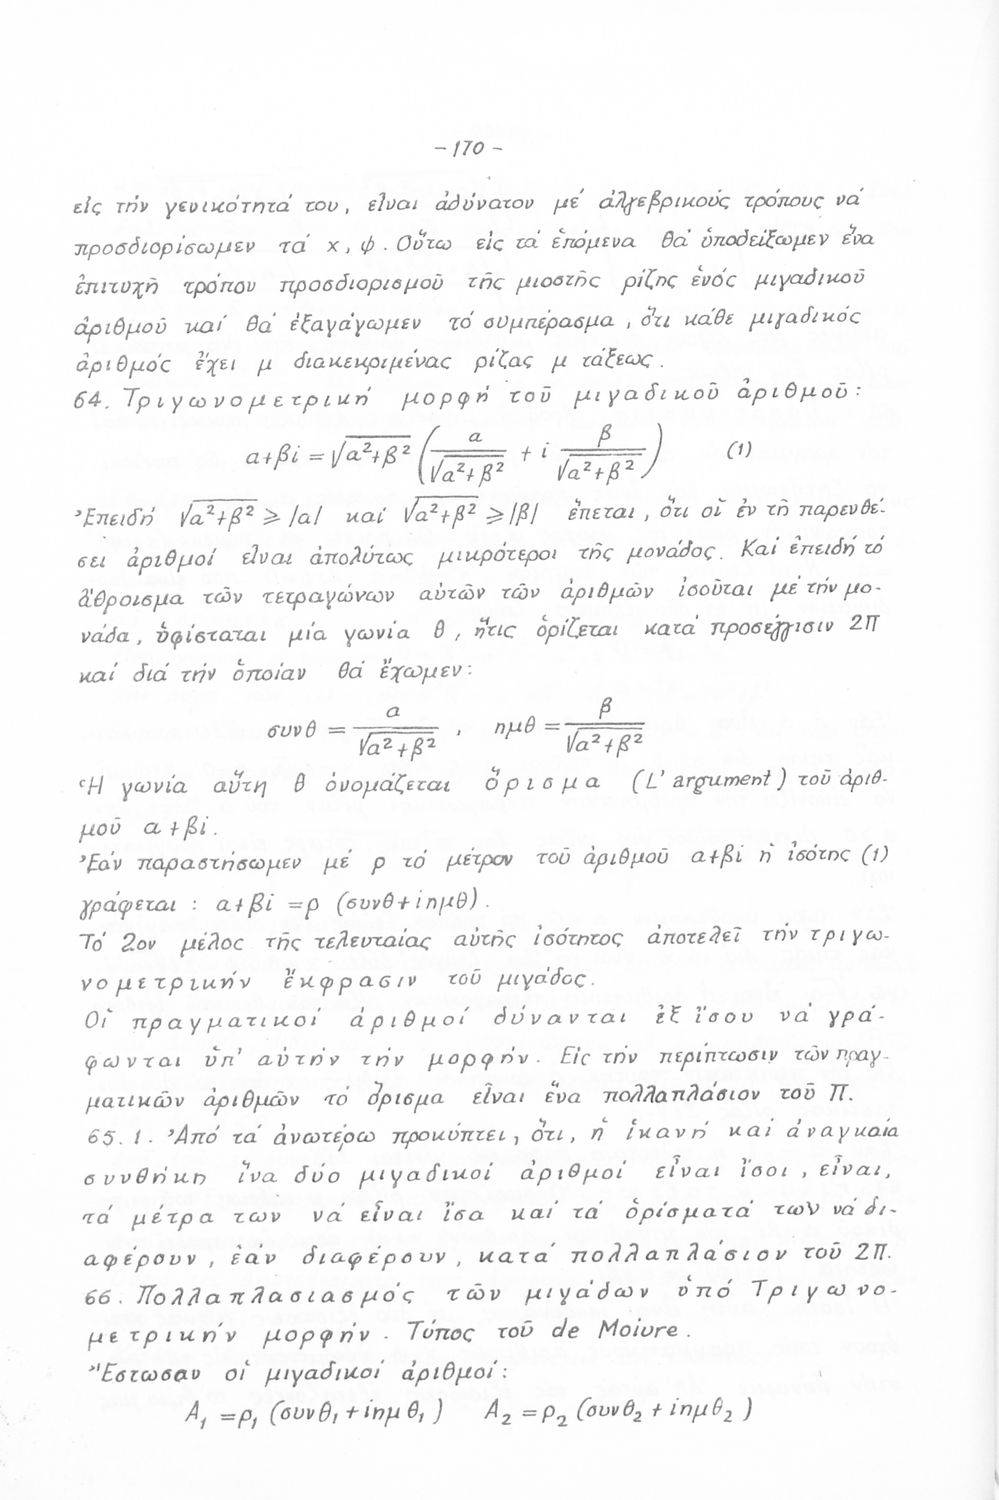 - 170 -
εἰς τήν γενικότητά του, εἶναι ἀδύνατον μέ ἀλγεβρικούς τρόπους νά
προσδιορίσωμεν τά x, ψ. Οὕτω εἰς τά ἑπόμενα θά ὑποδείξωμεν ἕνα
ἐπιτυχῆ τρόπον προσδιορισμοῦ τῆς μιοστῆς ρίζης ἑνός μιγαδικοῦ
ἀριθμοῦ καί θά ἐξαγάγωμεν τό συμπέρασμα, ὅτι κάθε μιγαδικός
ἀριθμός ἔχει μ διακεκριμένας ρίζας μ τάξεως.
64. Τριγωνομετρική μορφή τοῦ μιγαδικοῦ ἀριθμοῦ:
α+βi = √α²+β² ( α/√α²+β² + i β/√α²+β² ) (1)
Ἐπειδή √α²+β² ≥ |α| καί √α²+β² ≥ |β| ἕπεται, ὅτι οἵ ἐν τῇ παρενθέ-
σει ἀριθμοί εἶναι ἀπολύτως μικρότεροι τῆς μονάδος. Καί ἐπειδή τό
ἄθροισμα τῶν τετραγώνων αὐτῶν τῶν ἀριθμῶν ἰσοῦται μέ τήν μο-
νάδα, ὑφίσταται μία γωνία θ, ἥτις ὁρίζεται κατά προσέγγισιν 2Π
καί διά τήν ὁποίαν θά ἔχωμεν:
συνθ = α/√α²+β² , ημθ = β/√α²+β²
Ἡ γωνία αὕτη θ ὀνομάζεται ὄρισμα (L' argument) τοῦ ἀριθ-
μοῦ α+βi.
Ἐάν παραστήσωμεν μέ ρ τό μέτρον τοῦ ἀριθμοῦ α+βi ἡ ἰσότης (1)
γράφεται : α+βi = ρ (συνθ+iημθ).
Τό 2ον μέλος τῆς τελευταίας αὐτῆς ἰσότητος ἀποτελεῖ τήν τριγω-
νομετρικήν ἔκφρασιν τοῦ μιγάδος.
Οἱ πραγματικοί ἀριθμοί δύνανται ἐξ ἴσου νά γρά-
φωνται ὑπ' αὐτήν τήν μορφήν. Εἰς τήν περίπτωσιν τῶν πραγ-
ματικῶν ἀριθμῶν τό ὄρισμα εἶναι ἕνα πολλαπλάσιον τοῦ Π.
65. 1. Ἀπό τά ἀνωτέρω προκύπτει, ὅτι, ἡ ἱκανή καί ἀναγκαία
συνθήκη ἵνα δύο μιγαδικοί ἀριθμοί εἶναι ἴσοι, εἶναι,
τά μέτρα των νά εἶναι ἴσα καί τά ὁρίσματά των νά δι-
αφέρουν, ἐάν διαφέρουν, κατά πολλαπλάσιον τοῦ 2Π.
66. Πολλαπλασιασμός τῶν μιγάδων ὑπό Τριγωνο-
μετρικήν μορφήν. Τύπος τοῦ de Moivre.
Ἔστωσαν οἱ μιγαδικοί ἀριθμοί:
Α₁ = ρ₁ (συνθ₁ + iημθ₁) Α₂ = ρ₂ (συνθ₂ + iημθ₂)